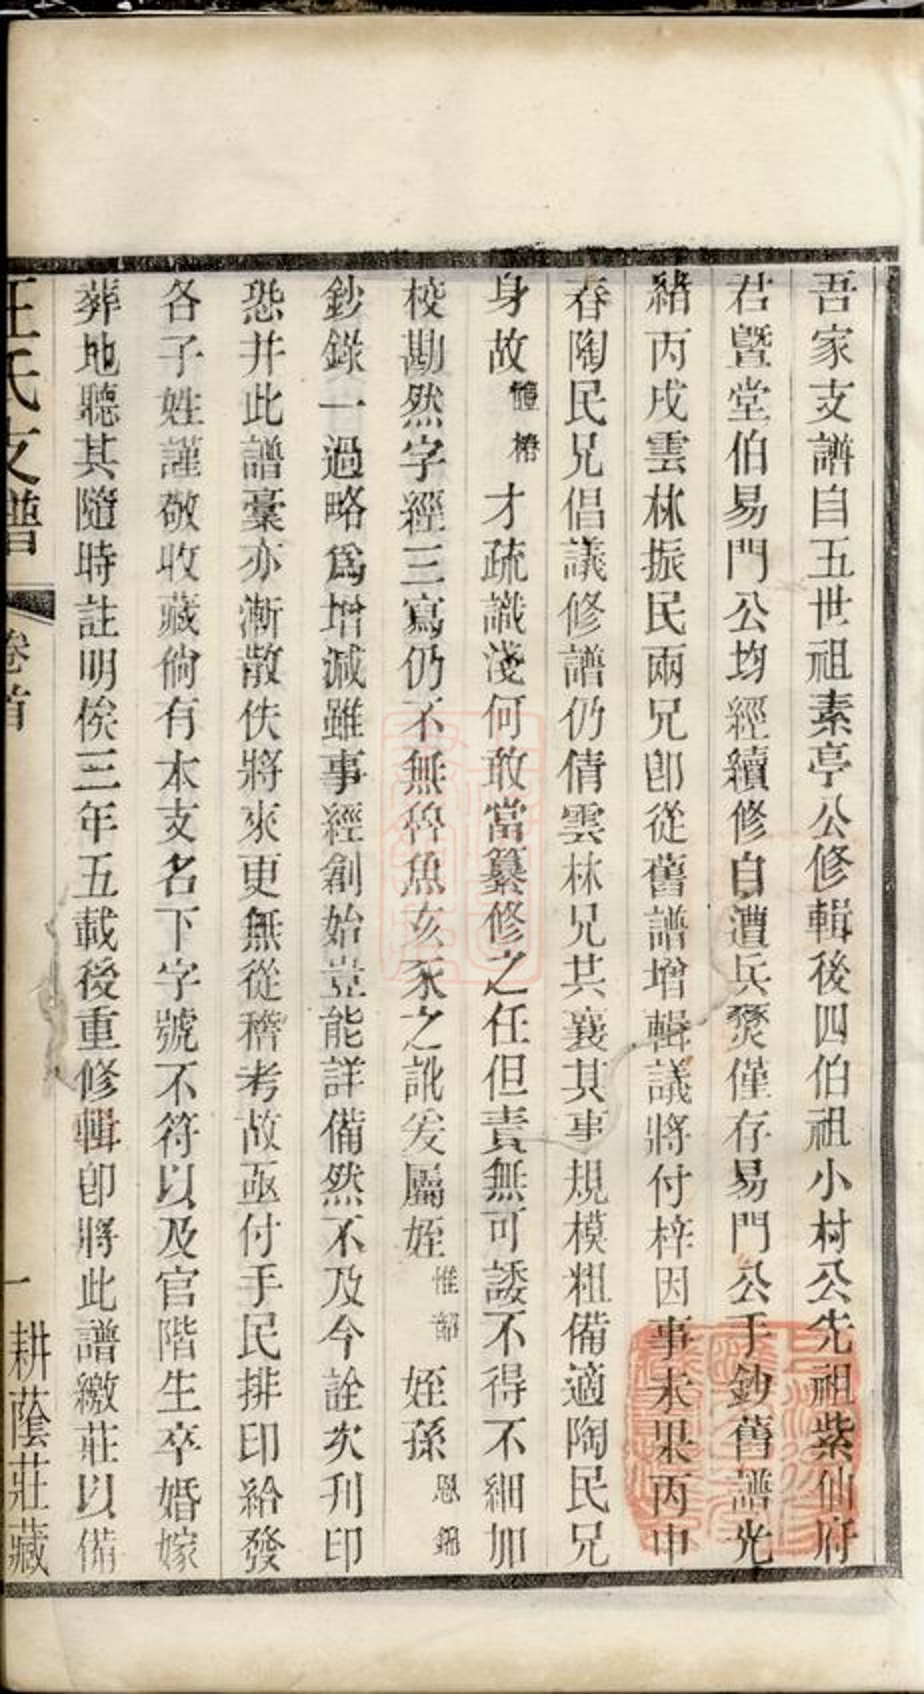 吾家支譜自五世祖素亭公修輯後四伯祖小村公先祖紫仙府
君暨堂伯易門公均經續修自遭兵燹僅存易門公手鈔舊譜光
緒丙戌雲林振民兩兄卽從舊譜增輯議將付梓因事未果丙申
春陶民兄倡議修譜仍倩雲林兄共襄其事規模粗備適陶民兄
身故體椿才疏識淺何敢當纂修之任但責無可諉不得不細加
校勘然字經三寫仍不無魯魚亥豕之訛爰屬姪惟韶姪孫恩錦
鈔錄一過略爲增減雖事經創始豈能詳備然不及今詮次刊印
恐幷此譜稾亦漸散佚將來更無從稽考故亟付手民排印給發
各子姓謹敬收藏倘有本支名下字號不符以及官階生卒婚嫁
葬地聽其隨時註明俟三年五載後重修輯卽將此譜繳莊以備
王氏支譜 卷首 一 耕蔭莊藏